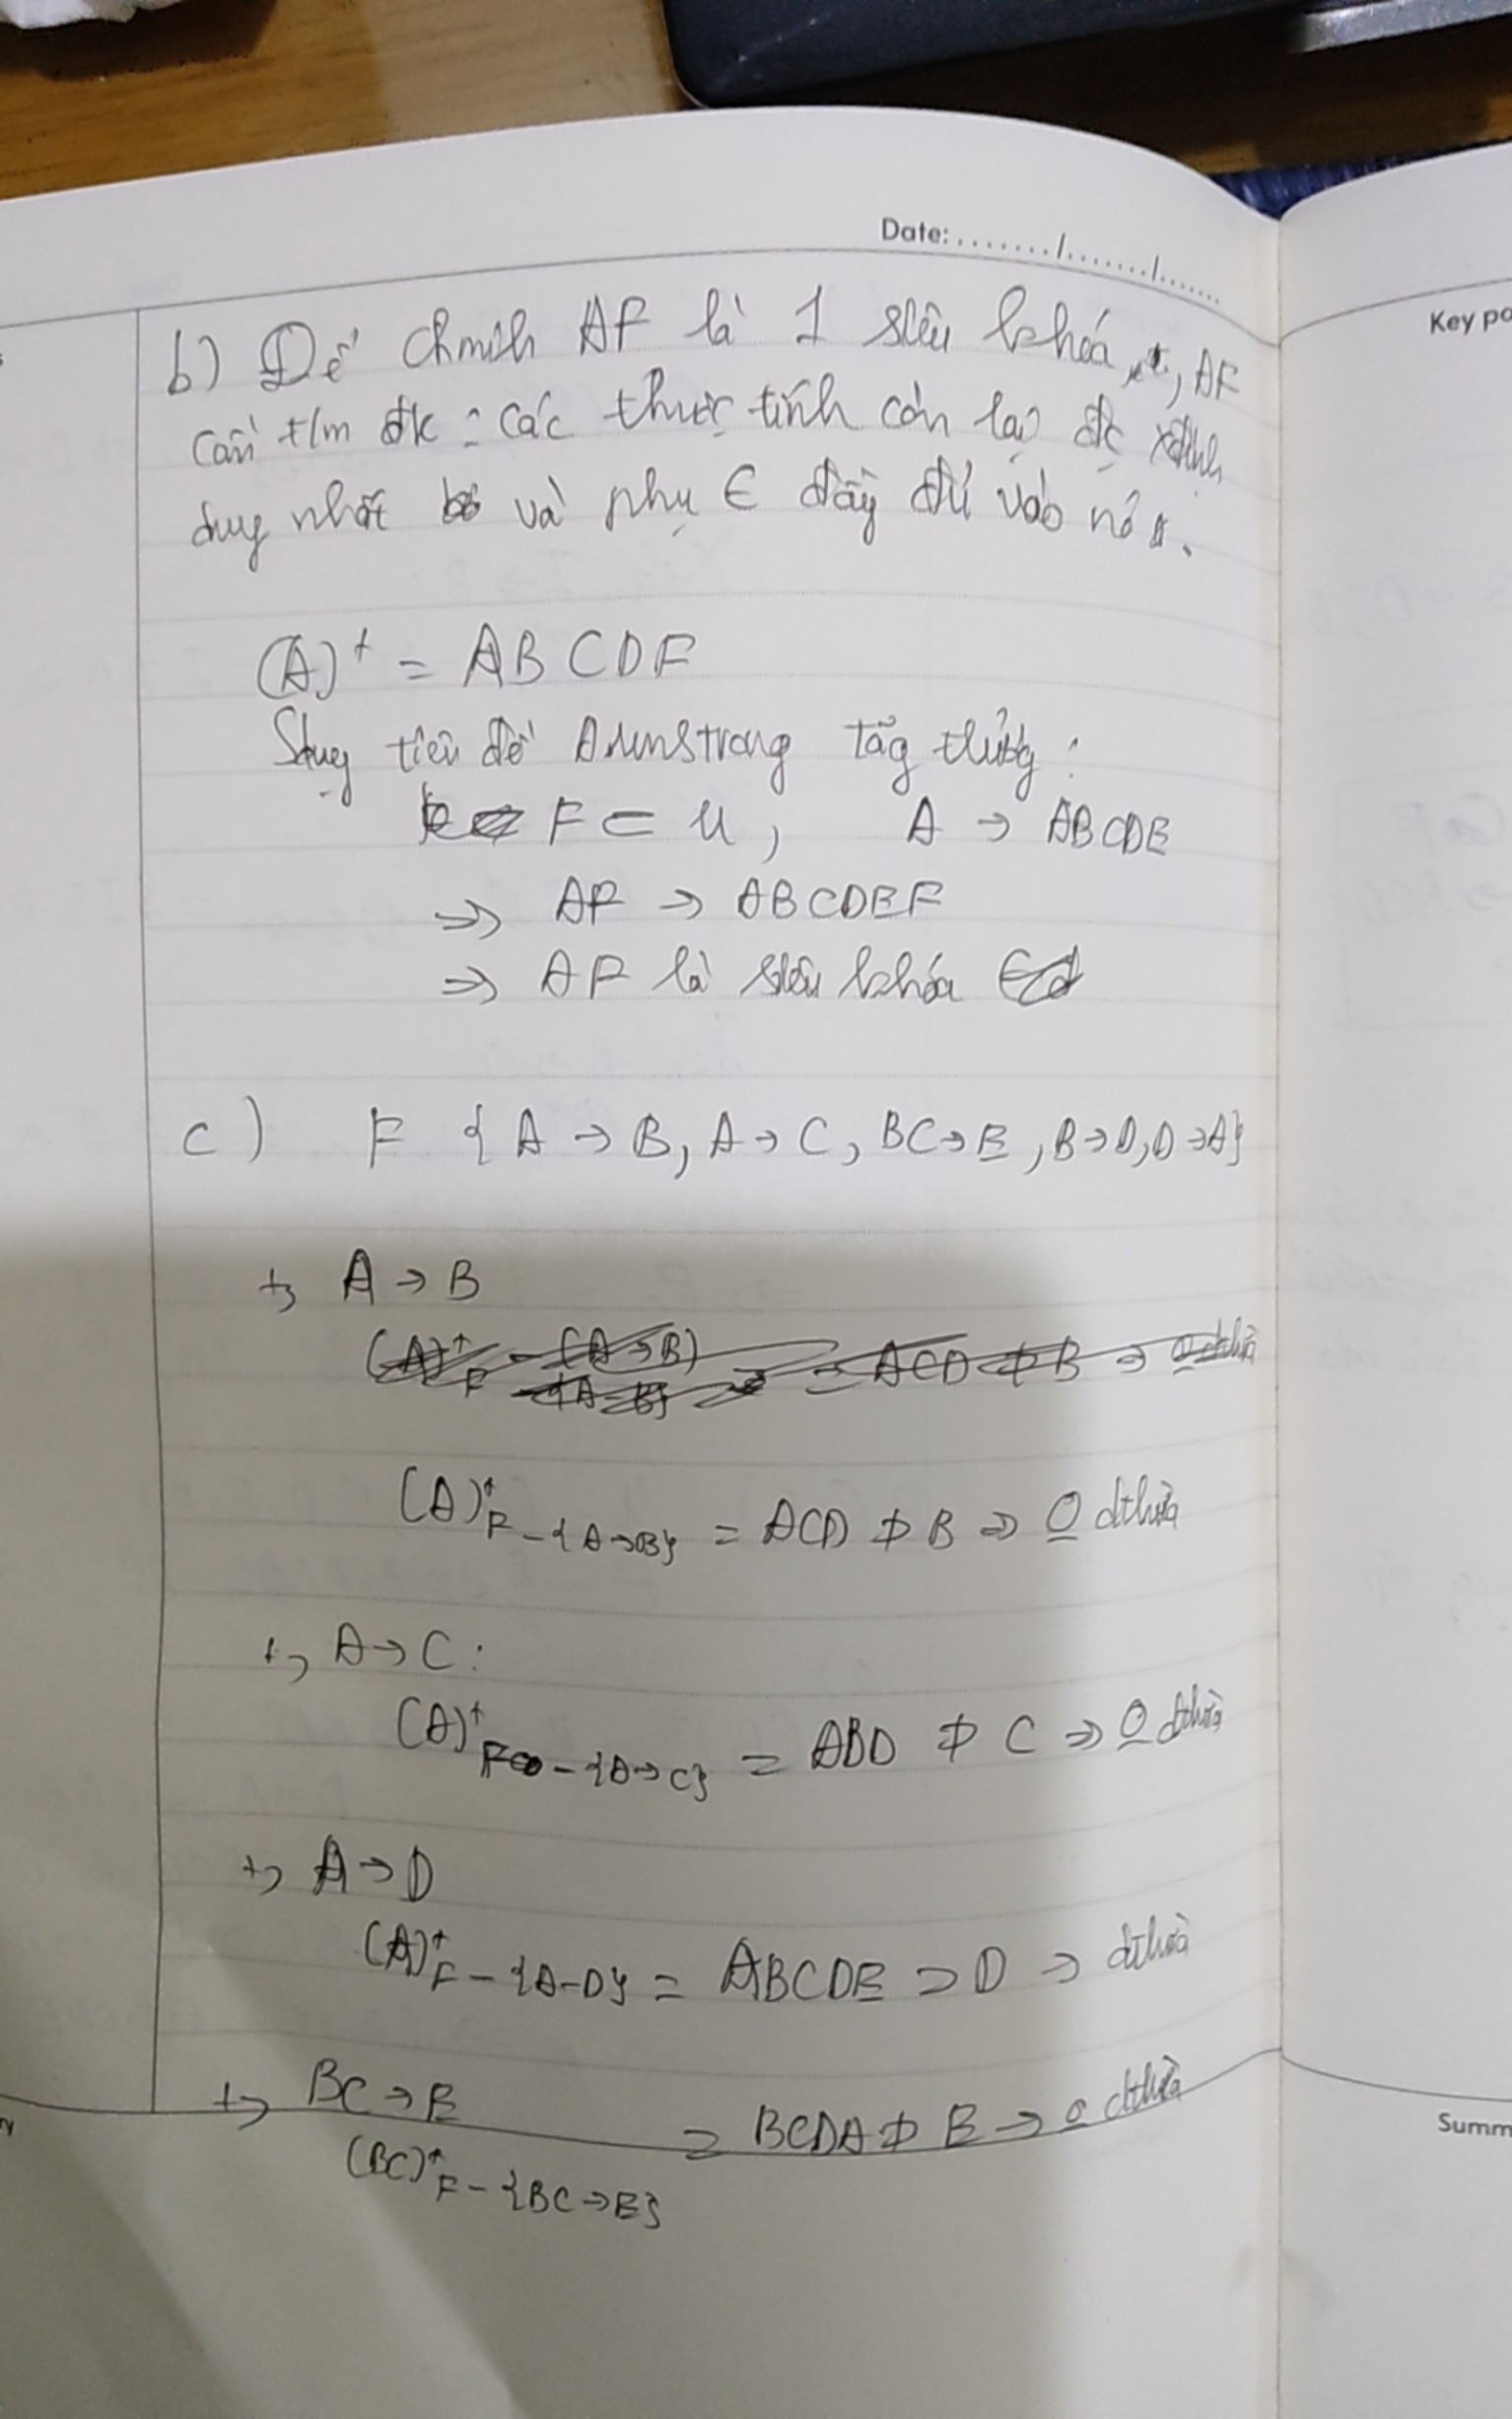 Date: ......./......./.......
Key po
b) Để chminh AF là 1 siêu khóa, AF
cần t/m đk : các thuộc tính còn lại đc xđịnh
duy nhất và phụ ∈ đầy đủ vào nó.
(A)⁺ = ABCDF
Sdụng tiên đề Armstrong tăg trưởng :
F ⊂ U, A → ABCDE
⇒ AF → ABCDEF
⇒ AF là siêu khóa
c) F { A → B, A → C, BC → E, B → D, D → A}
+, A → B
(A)⁺ F - {A → B} = ACD ⊅ B ⇒ 0 dthừa
+, A → C :
(A)⁺ F - {A → C} = ABD ⊅ C ⇒ 0 dthừa
+, A → D
(A)⁺ F - {A - D} = ABCDE ⊃ D → dthừa
+, BC → E
(BC)⁺ F - {BC → E} = BCDA ⊅ E → 0 dthừa
Summ